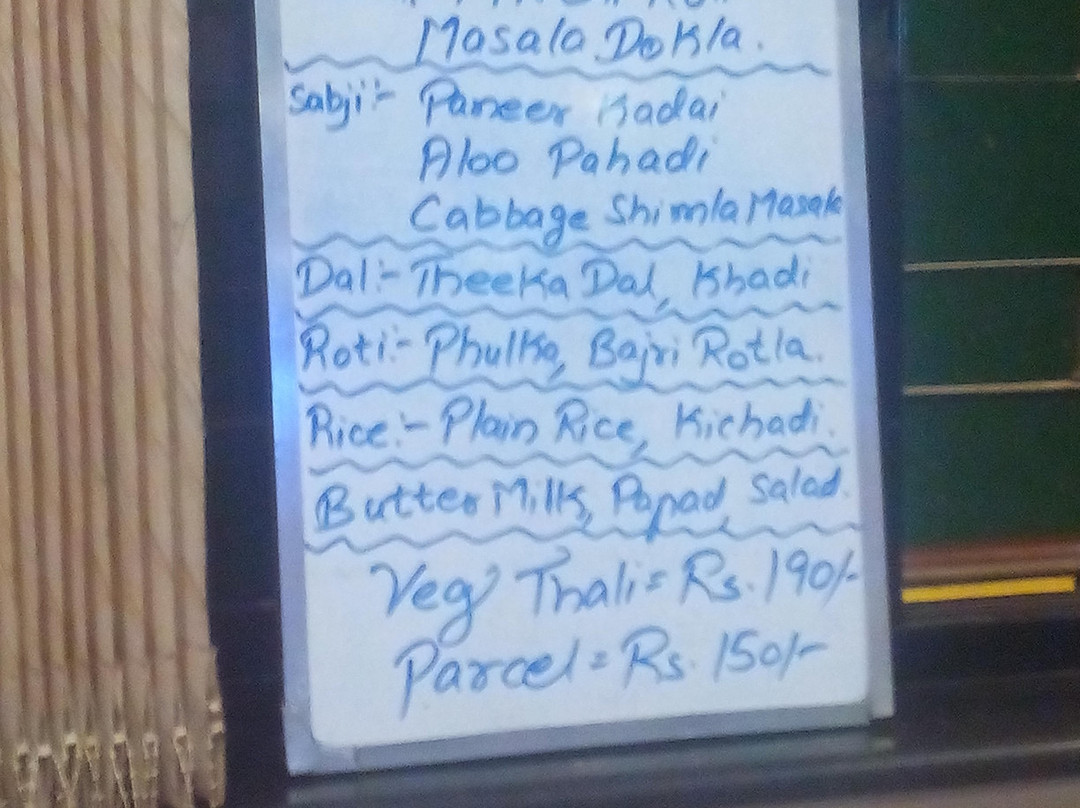 Masala Dokla.
Sabji:- Paneer Kadai
Aloo Pahadi
Cabbage Shimla Masala
Dal:- Theeka Dal, Khadi
Roti:- Phulka, Bajri Rotla.
Rice:- Plain Rice, Kichadi.
Butter Milk, Papad, Salad.
Veg Thali = Rs. 190/-
Parcel = Rs. 150/-